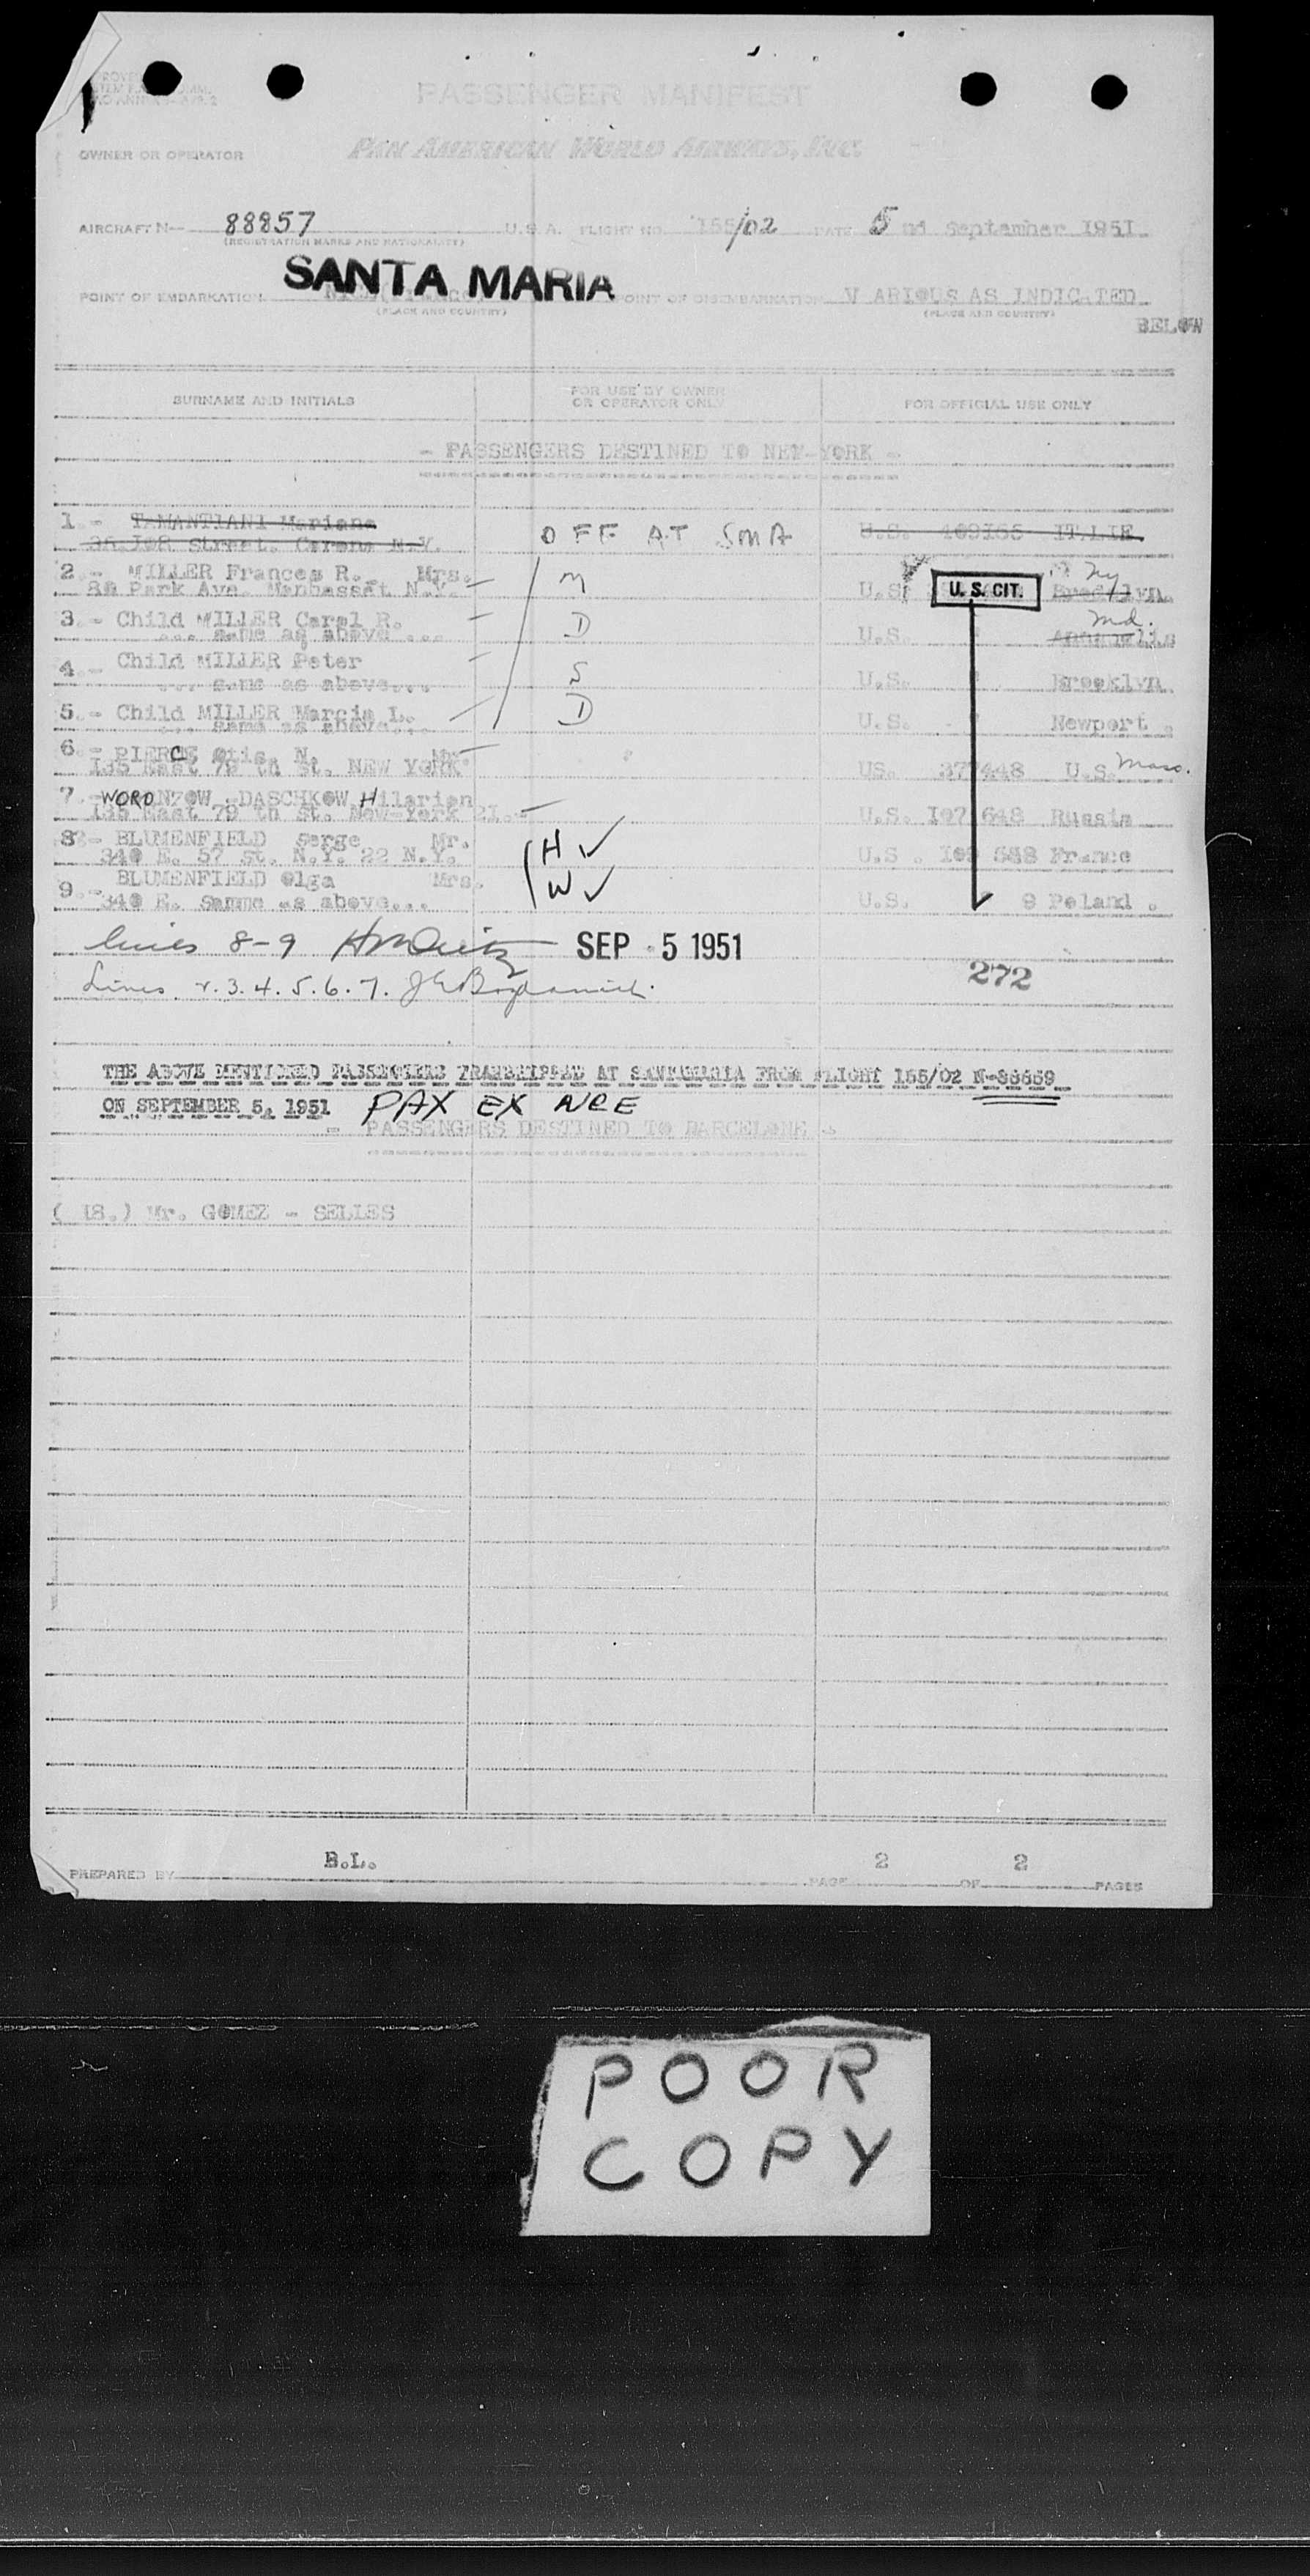 PASSENGER MANIFEST
OWNER OR OPERATOR PAN AMERICAN WORLD AIRWAYS, INC.
AIRCRAFT N-- 88857 U.S.A. FLIGHT NO. 155/02 DATE 5 nd September 1951
(REGISTRATION MARKS AND NATIONALITY)
SANTA MARIA
POINT OF EMBARKATION POINT OF DISEMBARKATION V ARIOUS AS INDICATED
(PLACE AND COUNTRY) (PLACE AND COUNTRY)
BELOW
SURNAME AND INITIALS FOR USE BY OWNER OR OPERATOR ONLY FOR OFFICIAL USE ONLY
- PASSENGERS DESTINED TO NEW-YORK -
1.- TAMANTIANI Mariana OFF AT SMA U.S. 409165 ITALIE.
Street. Corona N.Y.
2.- MILLER Frances R. Mrs. M U.S. U. S. CIT. Brooklyn. Ny
Park Ave. Manhasset N.Y.
3.- Child MILLER Carol R. D U.S. Annapolis Md.
... same as above ...
4.- Child MILLER Peter S U.S. Brooklyn
... same as above...
5.- Child MILLER Marcia L. D U.S. Newport.
... same as above...
6.- PIERCE Otis. N. Mr. US. 377448 U.S. Mass.
135 East 79 th St. NEW YORK
7.- WORONZOW -DASCHKOW Hilarion U.S. 107648 Russia
135 East 79 th St. New-York 21.-
8- BLUMENFIELD Serge Mr. H ✓ U.S. France
340 E. 57 st. N.Y. 22 N.Y.
9.- BLUMENFIELD Olga Mrs. W ✓ U.S. 9 Poland.
340 E. Samme as above...
lines 8-9 SEP 5 1951
272
Lines 2.3.4.5.6.7.
THE ABOVE MENTIONED PASSENGERS TRANSHIPPED AT SANTAMARIA FROM FLIGHT 155/02 N-88859
ON SEPTEMBER 5, 1951 PAX EX NCE
- PASSENGERS DESTINED TO BARCELONE -
( 18.) Mr. GOMEZ - SELLES
PREPARED BY B.L. PAGE 2 OF 2 PAGES
POOR
COPY